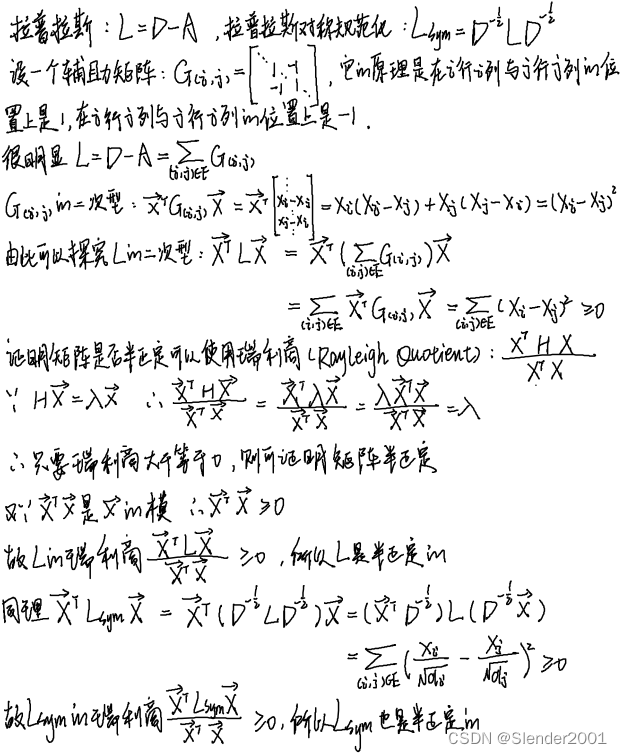 拉普拉斯：L=D-A，拉普拉斯对称规范化：L_sym=D^{-1/2}LD^{-1/2}
设一个辅助矩阵：G_{(i,j)}=[⋱ 1 -1 -1 1 ⋱]，它的原理是在i行i列与j行j列的位
置上是1，在i行j列与j行i列的位置上是-1.
很明显 L=D-A=∑_{(i,j)∈E}G_{(i,j)}
G_{(i,j)}的二次型：X⃗^T G_{(i,j)} X⃗ = X⃗^T [⋮ X_i-X_j ⋮ X_j-X_i ⋮] = X_i(X_i-X_j)+X_j(X_j-X_i)=(X_i-X_j)^2
由此可以探究L的二次型：X⃗^T L X⃗ = X⃗^T(∑_{(i,j)∈E}G_{(i,j)})X⃗
=∑_{(i,j)∈E}X⃗^T G_{(i,j)} X⃗ =∑_{(i,j)∈E}(X_i-X_j)^2 ≥0
证明矩阵是否半正定可以使用瑞利商(Rayleigh Quotient)：X^T H X / X^T X
∵ HX⃗=λX⃗ ∴ X⃗^T H X⃗ / X⃗^T X⃗ = X⃗^T λ X⃗ / X⃗^T X⃗ = λX⃗^T X⃗ / X⃗^T X⃗ =λ
∴只要瑞利商大于等于0，则可证明矩阵半正定
又∵X⃗^T X⃗是X⃗的模 ∴X⃗^T X⃗ ≥0
故L的瑞利商 X⃗^T L X⃗ / X⃗^T X⃗ ≥0，所以L是半正定的
同理 X⃗^T L_sym X⃗ = X⃗^T(D^{-1/2}LD^{-1/2})X⃗=(X⃗^T D^{-1/2})L(D^{-1/2}X⃗)
=∑_{(i,j)∈E}(X_i/√d_i - X_j/√d_j)^2 ≥0
故L_sym的瑞利商 X⃗^T L_sym X⃗ / X⃗^T X⃗ ≥0，所以L_sym也是半正定的
CSDN @Slender2001